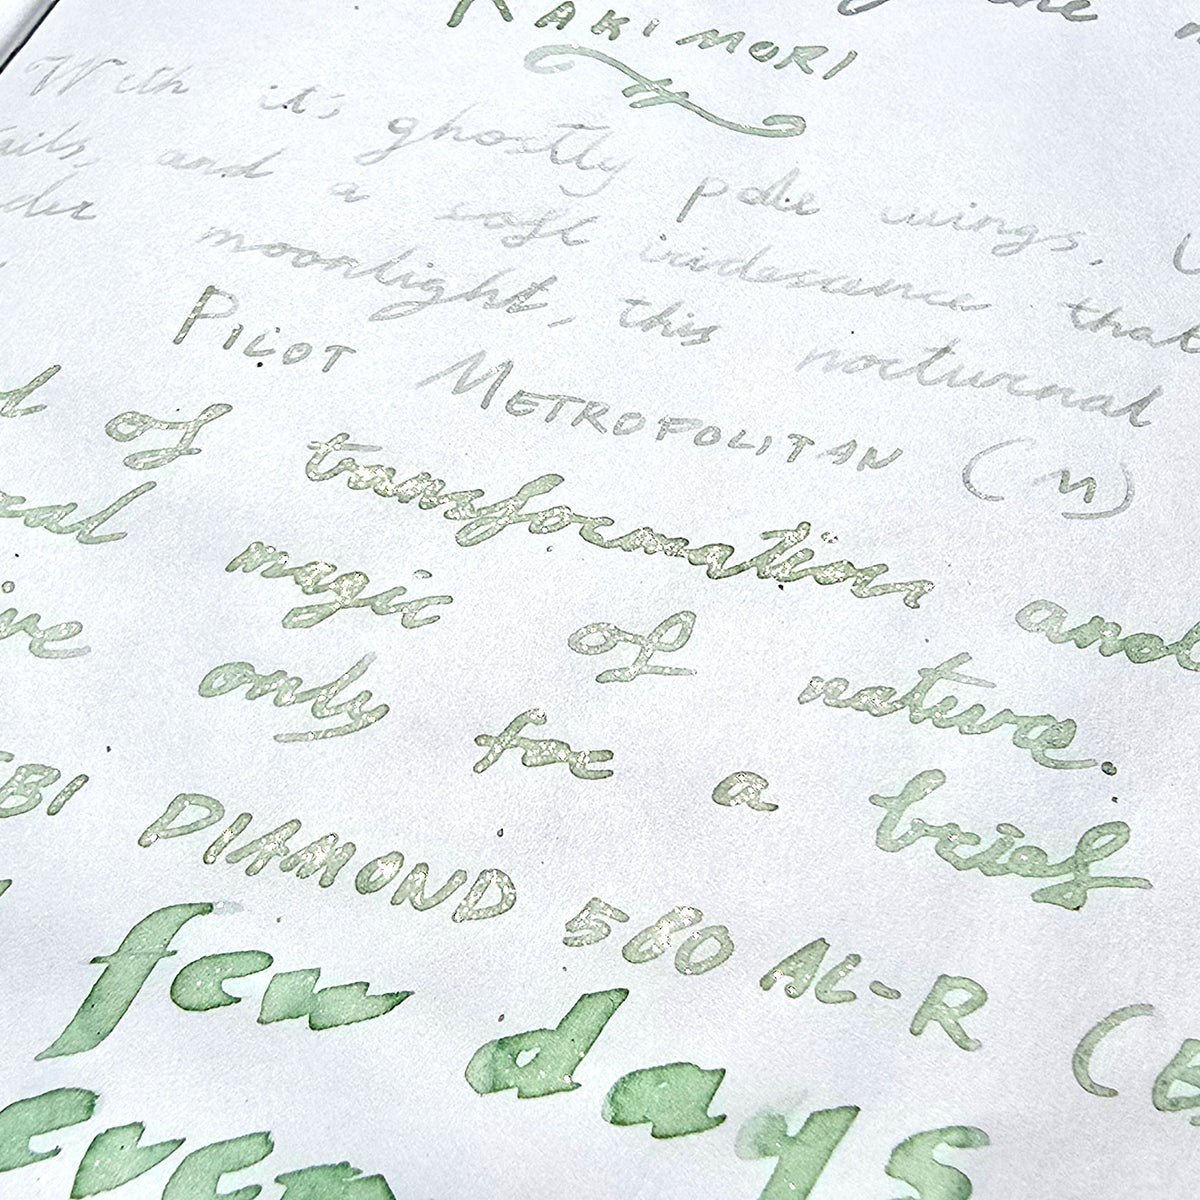 KAKIMORI
With it's ghostly pale wings,
tails, and a soft iridescence that
moonlight, this nocturnal
PILOT METROPOLITAN (M)
of transformation and
magic of nature.
only for a brief
DIAMOND 580 AL-R (B
few days
even